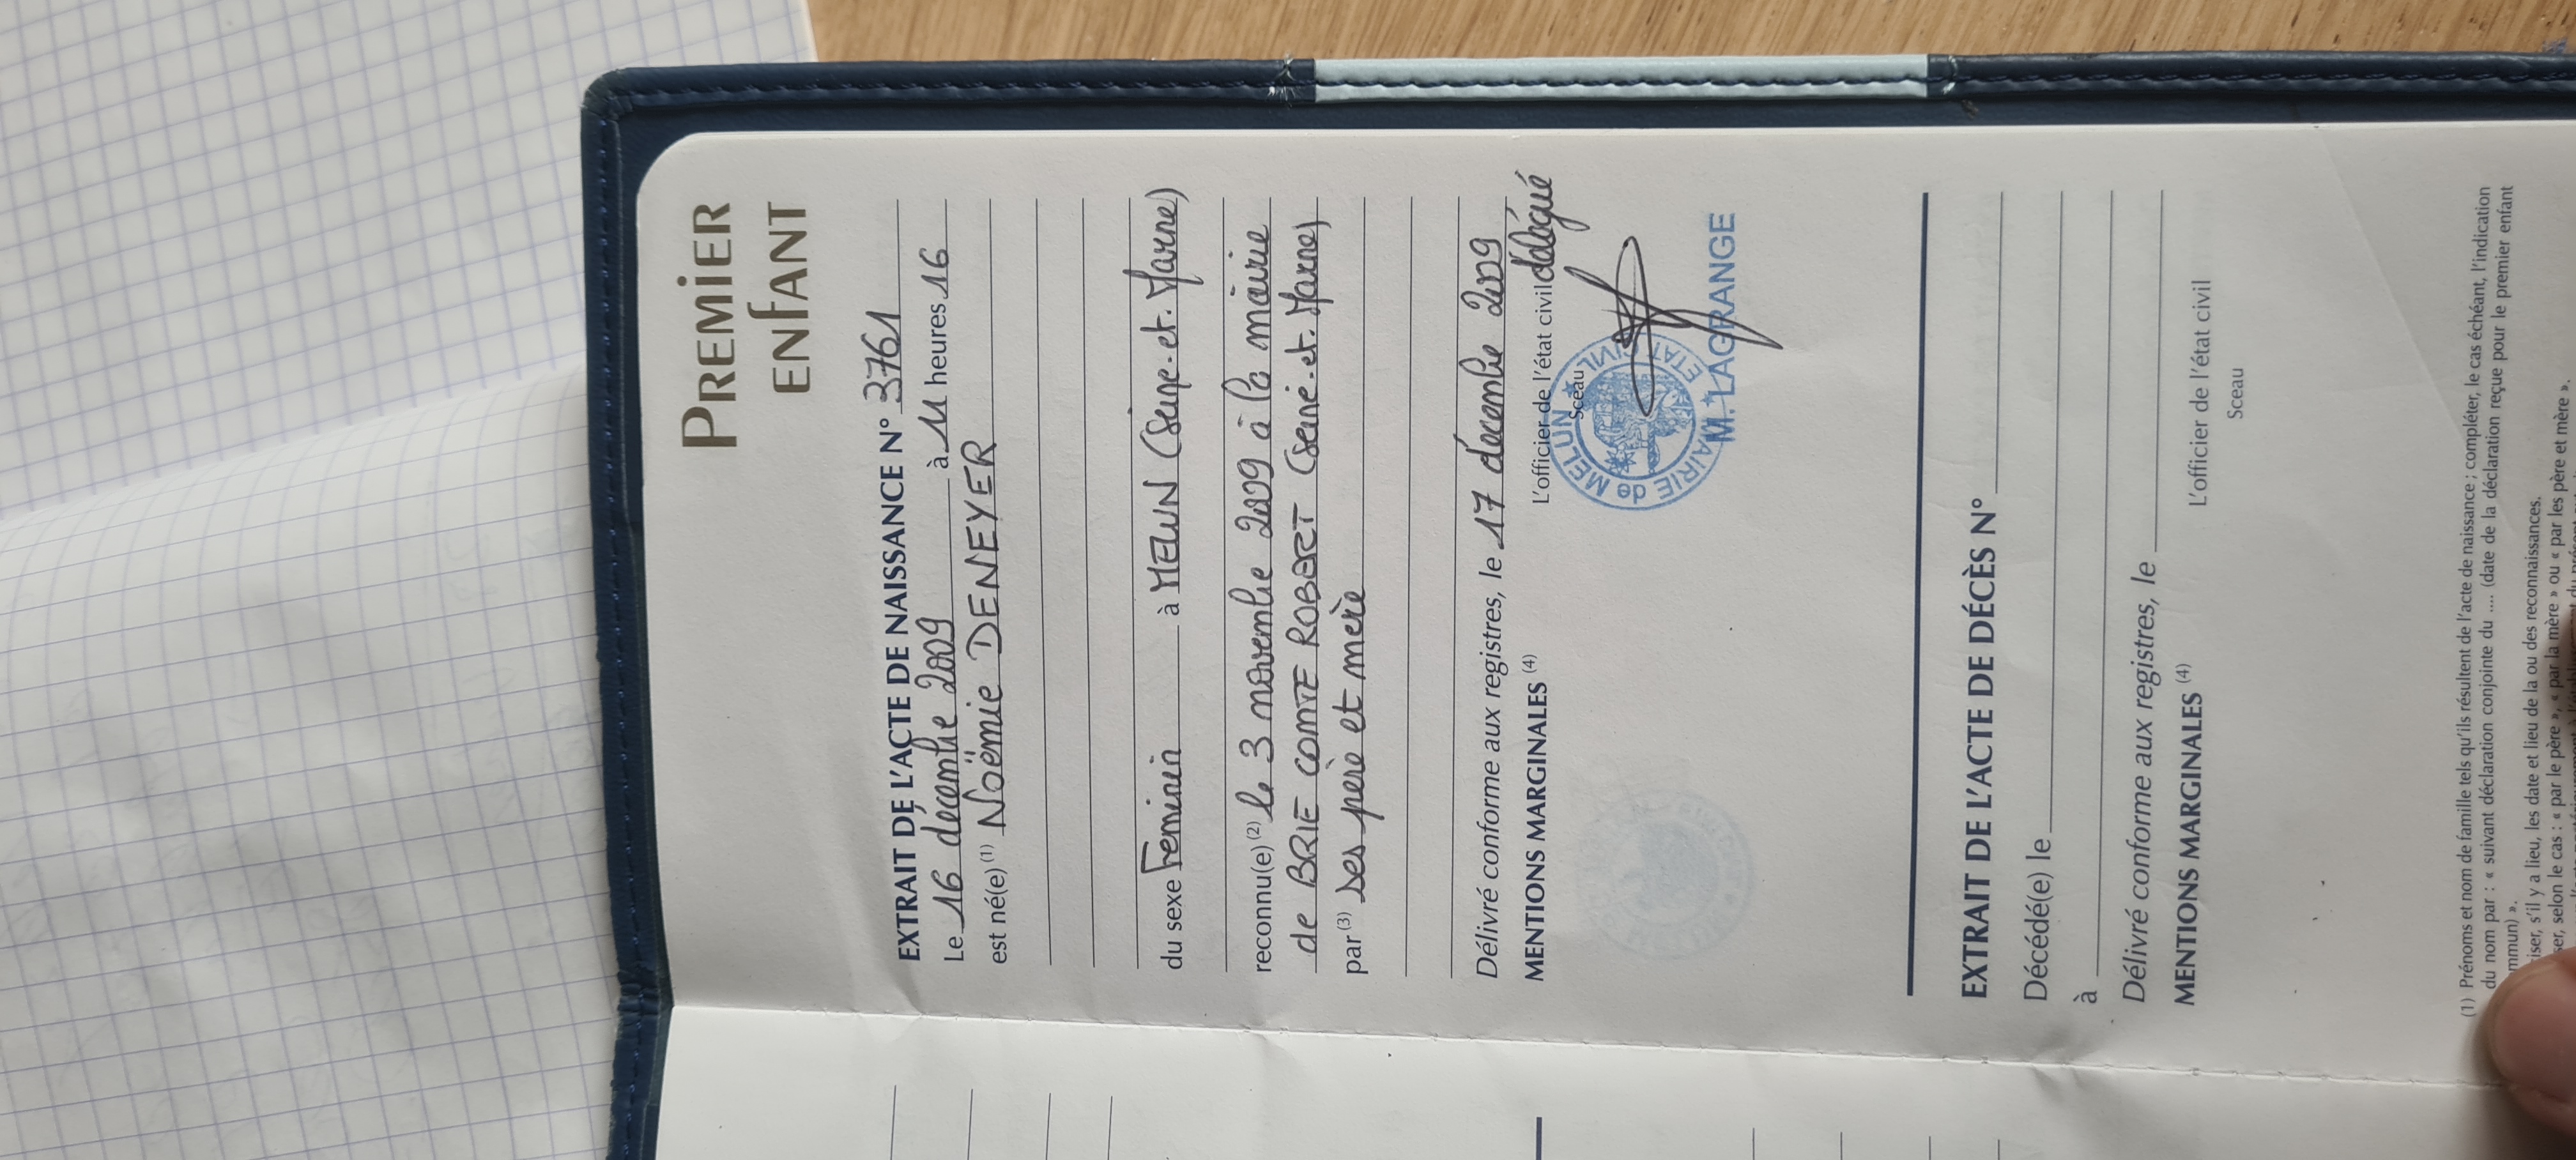 PREMIER
ENFANT
EXTRAIT DE L'ACTE DE NAISSANCE N° 3761
Le 16 décembre 2009 à 11 heures 16
est né(e) (1) Noëmie DENEYER
du sexe Féminin à MELUN (Seine-et-Marne)
reconnu(e) (2) le 3 novembre 2009 à la mairie
de BRIE COMTE ROBERT (Seine-et-Marne)
par (3) ses père et mère
Délivré conforme aux registres, le 17 décembre 2009
MENTIONS MARGINALES (4)
L'officier de l'état civil délégué
Sceau
MAIRIE de MELUN ★ ETAT CIVIL ★
M. LAGRANGE
EXTRAIT DE L'ACTE DE DÉCÈS N°
Décédé(e) le
à
Délivré conforme aux registres, le
MENTIONS MARGINALES (4)
L'officier de l'état civil
Sceau
(1) Prénoms et nom de famille tels qu'ils résultent de l'acte de naissance ; compléter, le cas échéant, l'indication
du nom par : « suivant déclaration conjointe du .... (date de la déclaration reçue pour le premier enfant
mmun) ».
iser, s'il y a lieu, les date et lieu de la ou des reconnaissances.
ser, selon le cas : « par le père », « par la mère » ou « par les père et mère ».